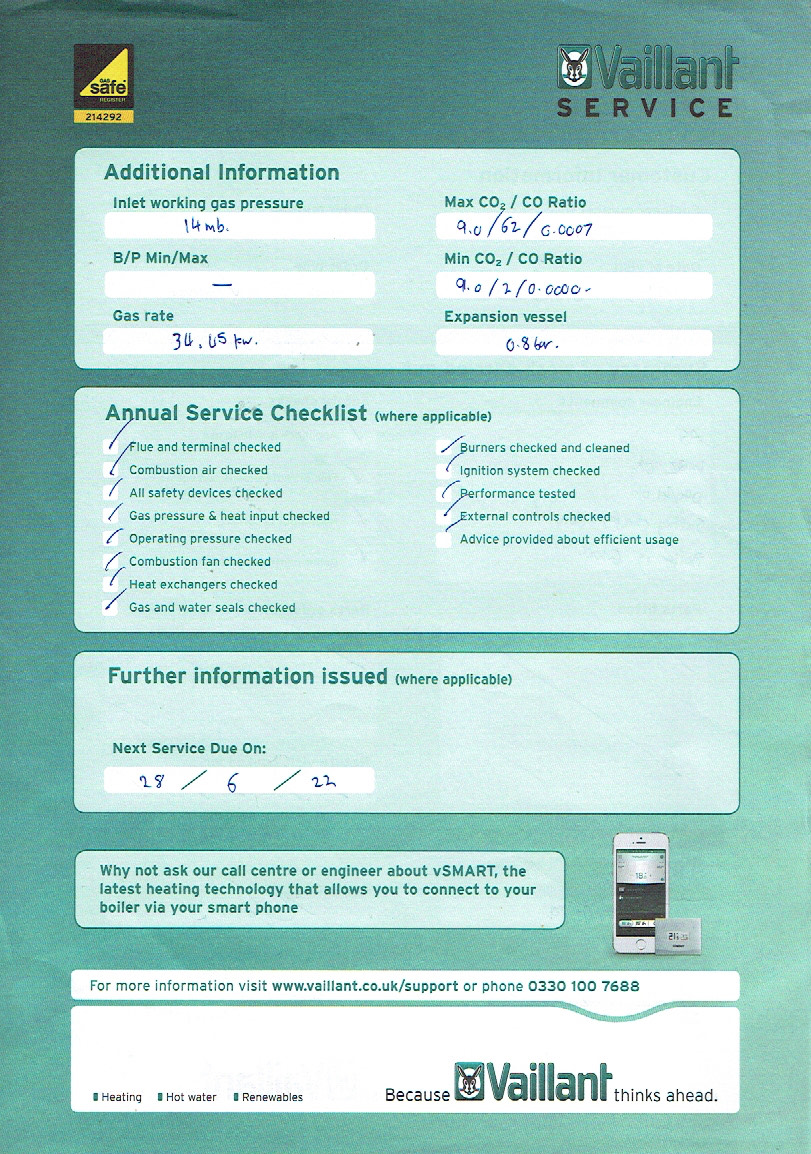 GAS
safe
REGISTER
214292
Vaillant
SERVICE
Additional Information
Inlet working gas pressure
14 mb.
Max CO₂ / CO Ratio
9.0/62/0.0007
B/P Min/Max
—
Min CO₂ / CO Ratio
9.0/2/0.0000-
Gas rate
34.45 kw.
Expansion vessel
0.8 bar.
Annual Service Checklist (where applicable)
Flue and terminal checked
Combustion air checked
All safety devices checked
Gas pressure & heat input checked
Operating pressure checked
Combustion fan checked
Heat exchangers checked
Gas and water seals checked
Burners checked and cleaned
Ignition system checked
Performance tested
External controls checked
Advice provided about efficient usage
Further information issued (where applicable)
Next Service Due On:
28 / 6 / 22
Why not ask our call centre or engineer about vSMART, the
latest heating technology that allows you to connect to your
boiler via your smart phone
For more information visit www.vaillant.co.uk/support or phone 0330 100 7688
Heating Hot water Renewables
Because Vaillant thinks ahead.